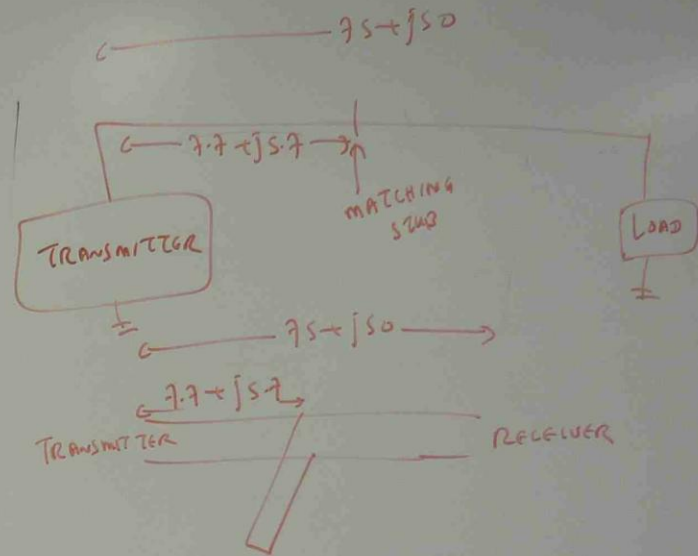 75+j50
7.7+j5.7
MATCHING
STUB
TRANSMITTER
LOAD
75+j50
7.7+j5.7
TRANSMITTER
RECEIVER